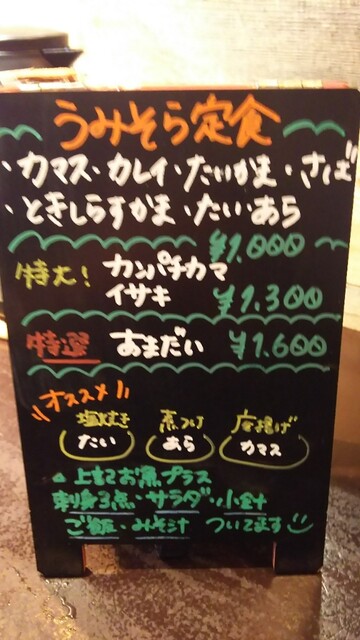 うみそら定食
・カマス・カレイ・たいかま・さば
・ときしらすかま・たい・あら
¥1.000
特大！ カンパチカマ
イサキ ¥1.300
特選 あまだい ¥1.600
オススメ！！
塩焼き 煮つけ 唐揚げ
たい あら カマス
△上記お魚プラス
刺身3点・サラダ・小針
ご飯・みそ汁 ついてます